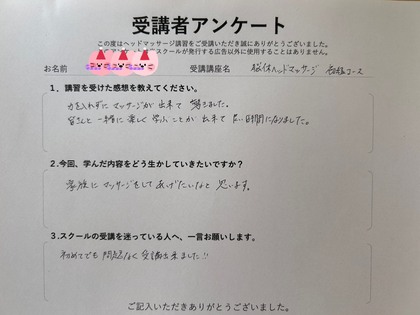 受講者アンケート
この度はヘッドマッサージ講習をご受講いただき誠にありがとうございました。
アンケートはスクールが発行する広告以外に使用することはありません。
お名前 受講講座名 脳休ヘッドマッサージ 初級コース
1、講習を受けた感想を教えてください。
力を入れずにマッサージが出来て驚きました。
皆さんと一緒に楽しく学ぶことが出来て良い時間になりました。
2.今回、学んだ内容をどう生かしていきたいですか?
家族にマッサージをしてあげたいなと思います。
3.スクールの受講を迷っている人へ、一言お願いします。
初めてでも問題なく受講出来ました!!
ご記入いただきありがとうございました。